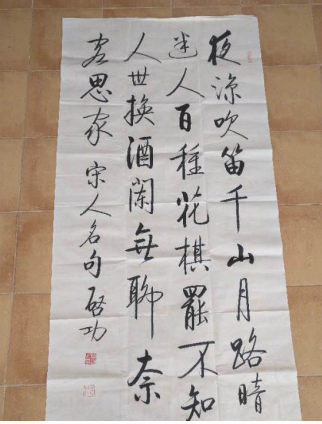 夜涼吹笛千山月路暗
迷人百種花棋罷不知
人世換酒闌無聊奈
客思家 宋人名句 啓功